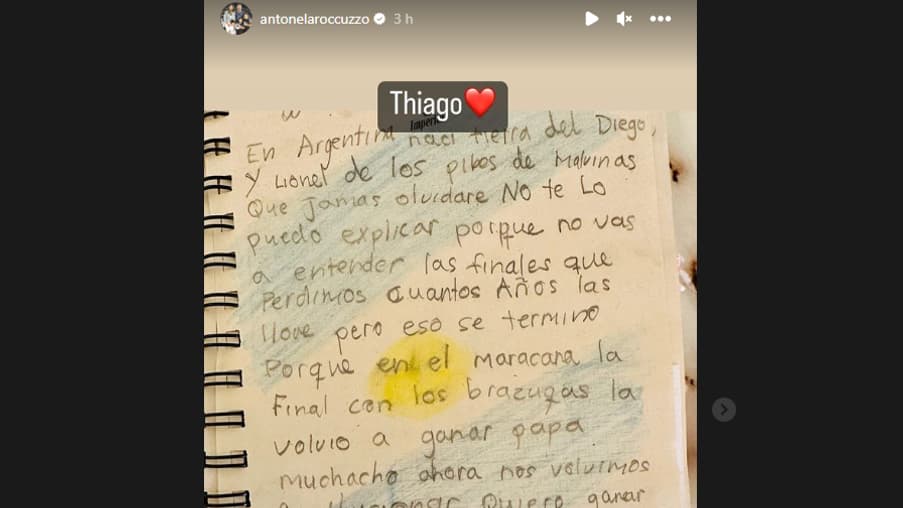 antonelaroccuzzo 3 h
Thiago
En Argentina naci tierra del Diego,
Y Lionel de los pibes de Malvinas
Que Jamas olvidare No te Lo
puedo explicar porque no vas
a entender las finales que
Perdimos cuantos Años las
llore pero eso se termino
Porque en el maracana la
Final con los brazugas la
volvio a ganar papa
muchacho ahora nos volvimos
Quiero ganar